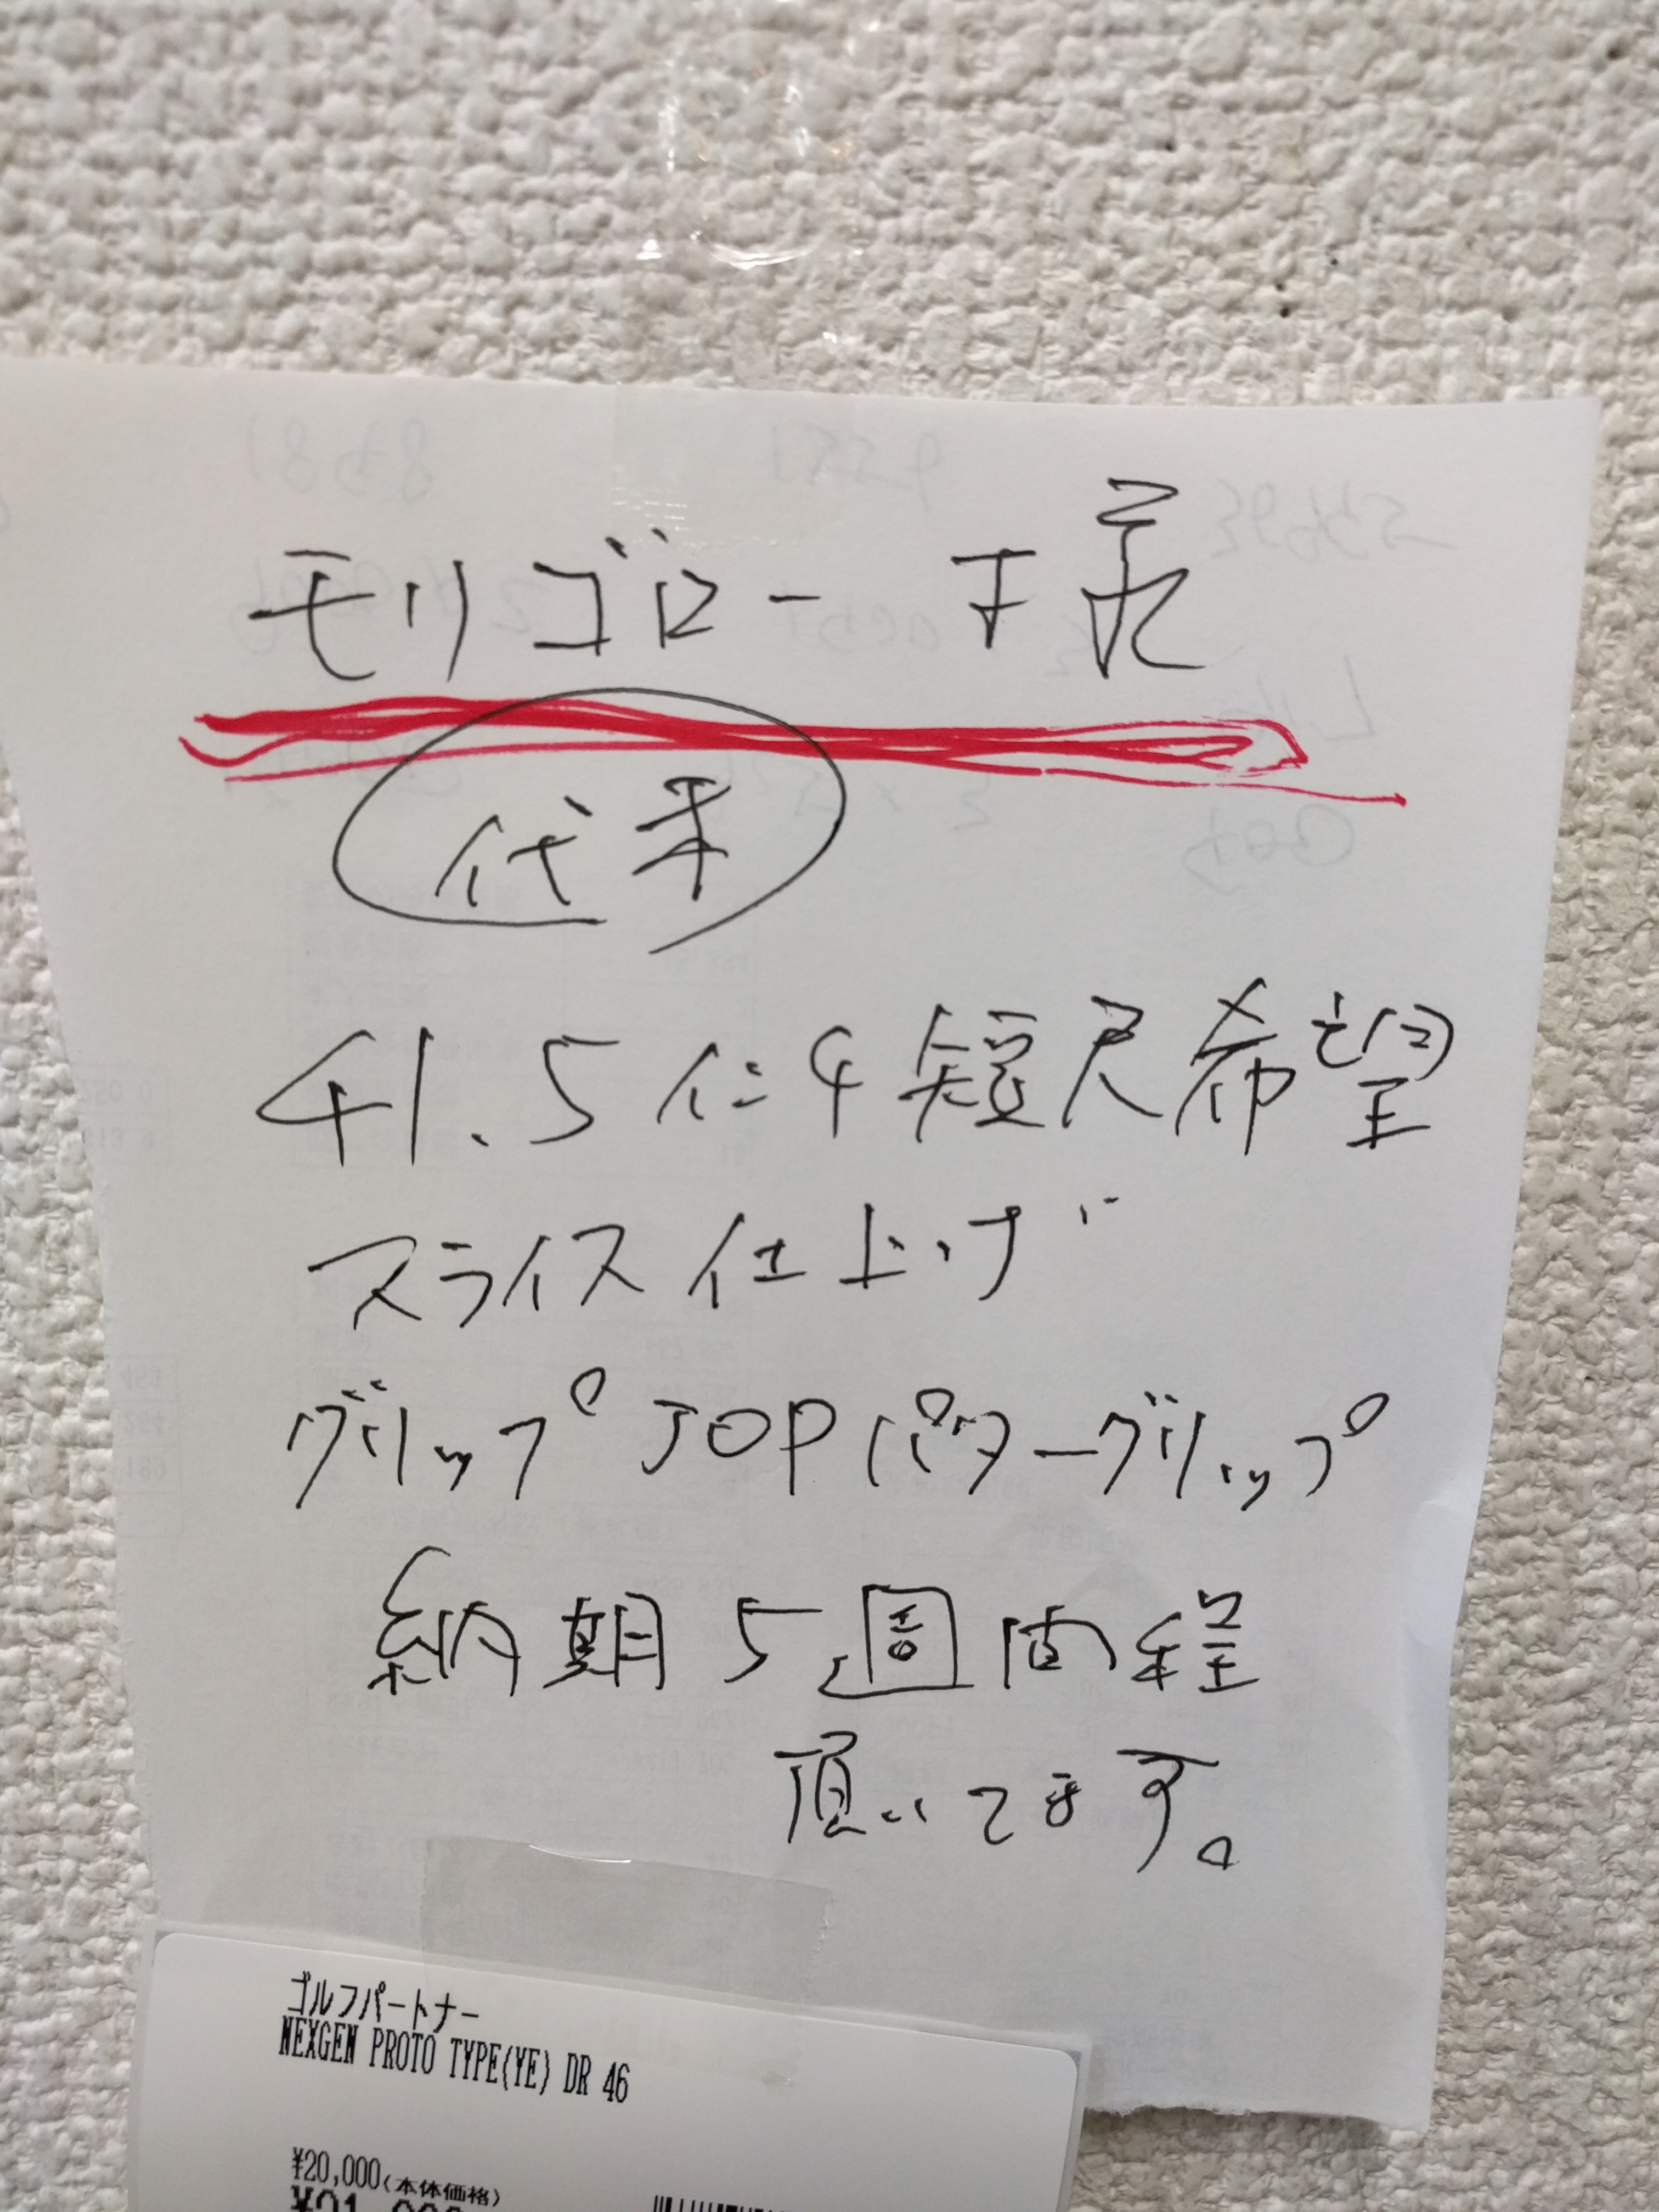 モリゴロー 〒様
代未
41.5インチ短尺希望
スライス仕上げ
グリップJOPパターグリップ
納期5週間程
頂いてます。
ゴルフパートナー
NEXGEN PROTO TYPE(YE) DR 46
¥20,000(本体価格)